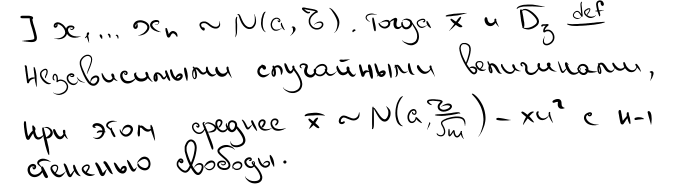 ] x₁,... xₙ ~ N(a, τ). Тогда x̅ и D̅₃ def
независимыми случайными величинами,
при этом среднее x̅ ~ N(a, τ/√m) – хи² с n-1
степенью свободы.